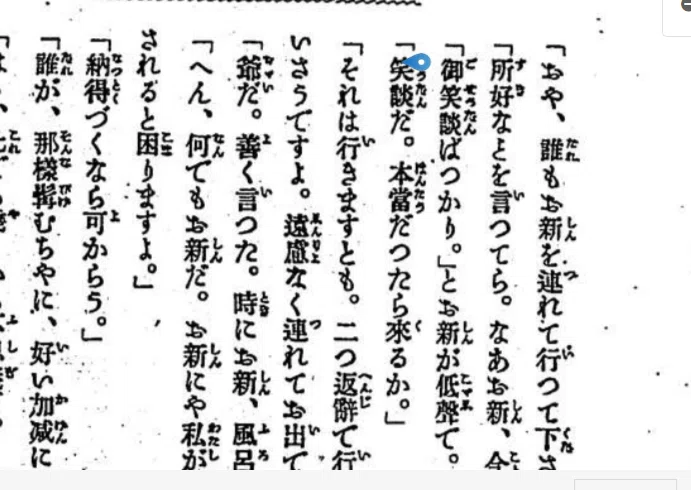 「おや、誰もお新を連れて行つて下さ
「所好なとを言つてら。なあお新、今
「御笑談ばつかり。」とお新が低聲で。
「笑談だ。本當だつたら來るか。」
「それは行きますとも。二つ返辭で行
いさうですよ。遠慮なく連れてお出で
「爺だ。善く言つた。時にお新、風呂
「へん、何でもお新だ。お新にや私が
されると困りますよ。」
「納得づくなら可からう。」
「誰が、那樣髯むちやに、好い加减に